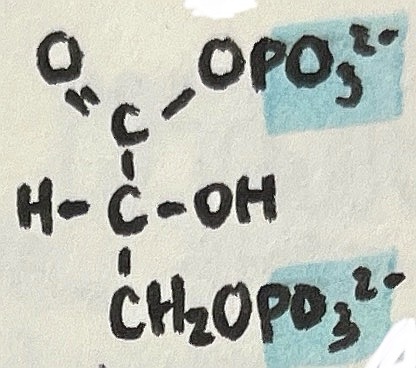 O OPO₃²⁻
C
H-C-OH
CH₂OPO₃²⁻